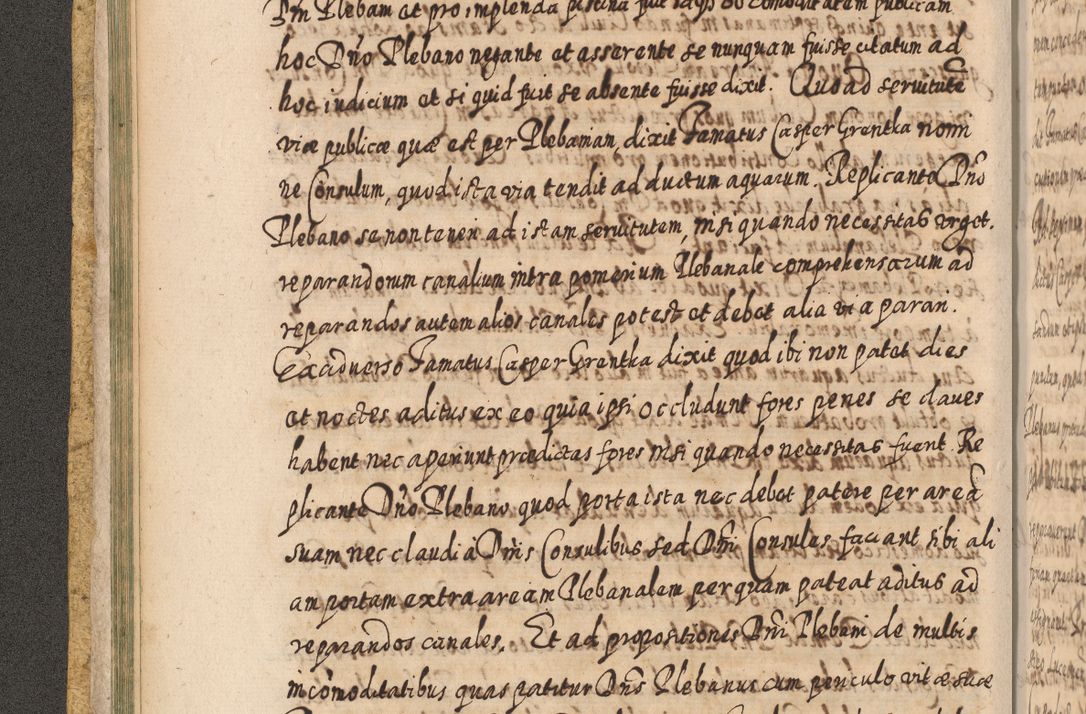 Dni Plebani et pro implenda
hoc Dño Plebano negante et asserente se nunquam fuisse citatum ad
hoc iudicium et si quid fuit se absente fuisse dixit. Quoad seruitutē
viæ publicæ quæ est per Plebaniam, dixit Famatus Casper Grentka nomi
ne Consulum, quod ista via tendit ad ductum aquarum. Replicante Dño
Plebano se non teneri ad istam seruitutem, nisi quando necessitas vrget.
reparandorum canalium intra pomerium Plebanale comprehensarum ad
reparandos autem alios canales potest et debet alia via parari.
Ex aduerso Famatus Casper Grentka dixit quod ibi non patet dies
et noctes aditus ex eo quia ipsi occludunt fores penes se claues
habent nec aperiunt prædictas fores nisi quando necessitas fuerit. Re
plicante Dño Plebano quod porta ista nec debet patere per areā
suam nec claudi à Dñis Consulibus sed Dñi Consules faciant sibi ali
am portam extra aream Plebanalem per quam pateat aditus ad
reparandos canales. Et ad propositiones Dñi Plebani de multis
incōmoditatibus quas patitur Dñs Plebanus cum periculo vitæ suæ